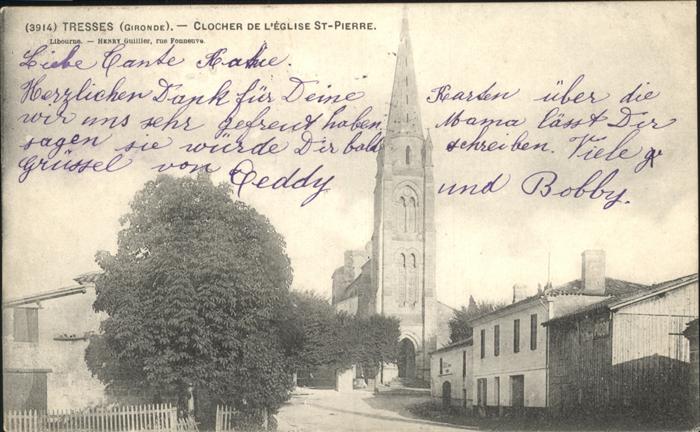 (3914) TRESSES (GIRONDE). — CLOCHER DE L'ÉGLISE ST-PIERRE.
Libourne. — HENRY Guillier, rue Fonneuve.
Liebe Tante Käthe.
Herzlichen Dank für Deine Karten über die
wir uns sehr gefreut haben Mama lässt Dir
sagen sie würde Dir bald schreiben. Viele
Grüssel von Teddy und Bobby.